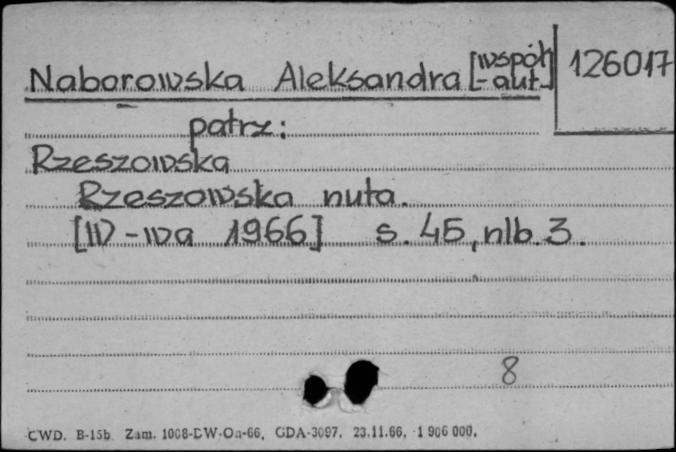 Naborowska Aleksandra [współ-aut.] 126017
patrz:
Rzeszowska
Rzeszowska nuta.
[W-wa 1966] s. 45, nlb. 3.
8
CWD. B-15b. Zam. 1008-DW-Oa-66, GDA-3097. 23.11.66. 1 906 000.